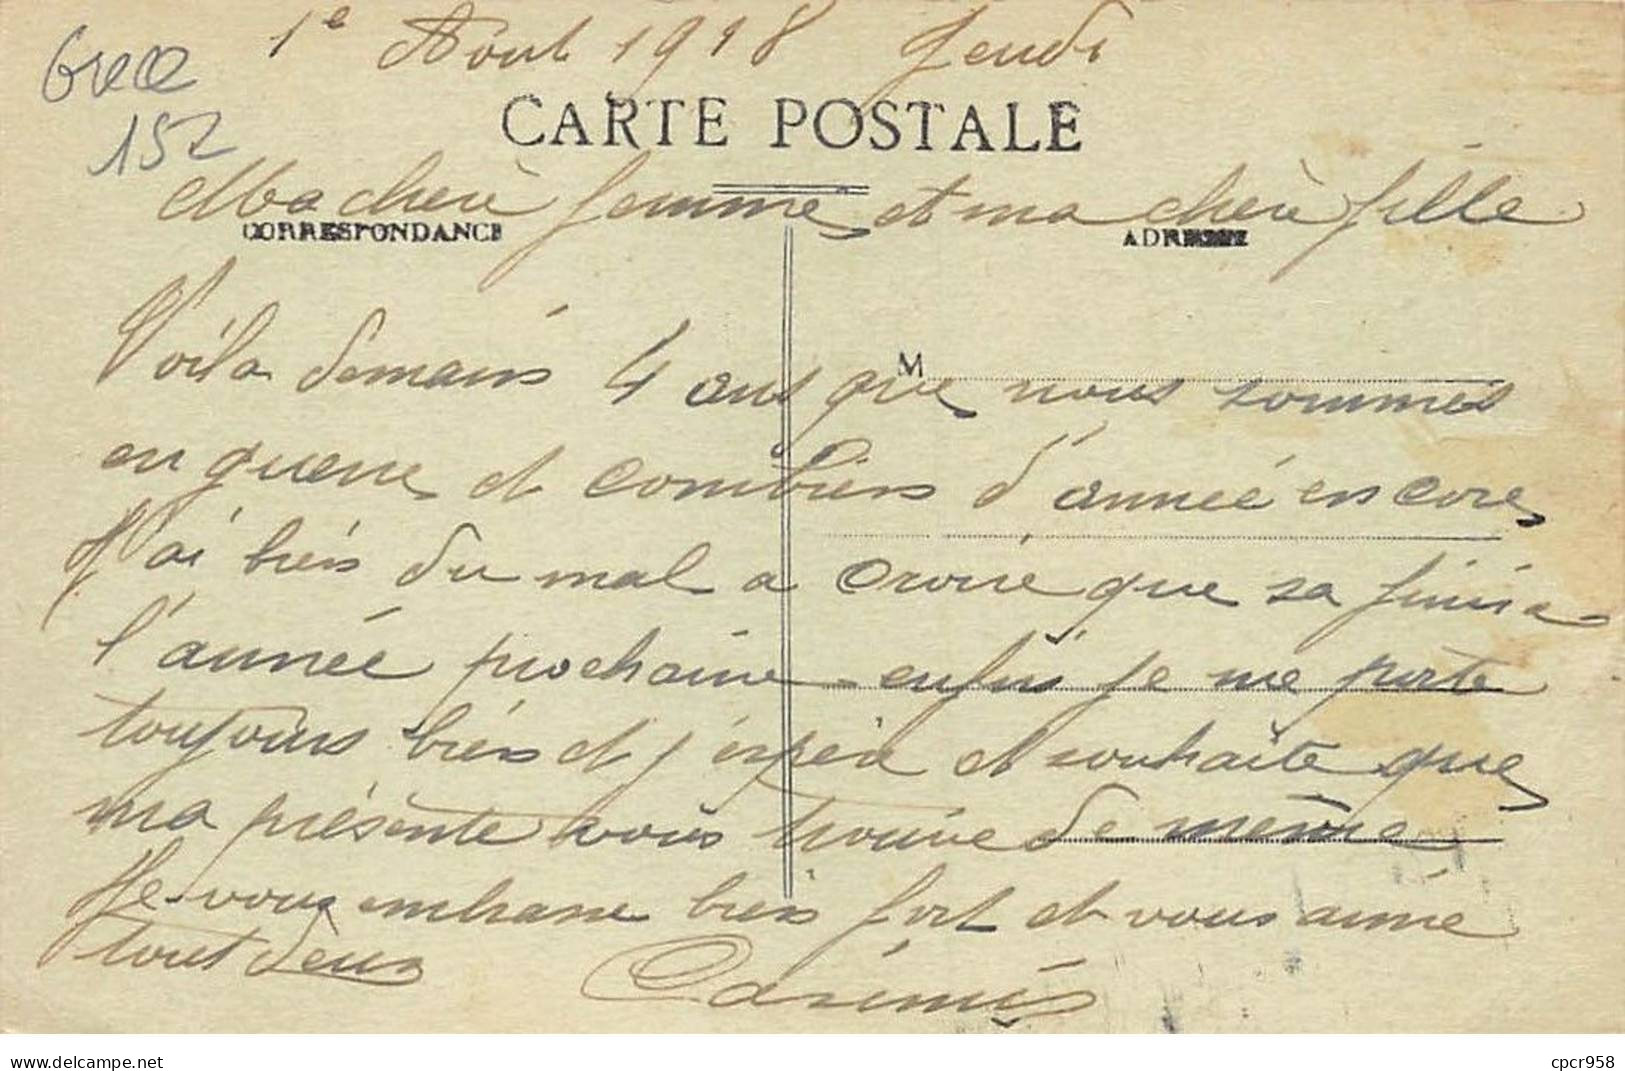 1e Aout 1918 Jeudi
Grece
152
CARTE POSTALE
Ma cherè femme et ma cherè fille
CORRESPONDANCE
ADRESSE
Voila demain 4 ans que nous sommes
M
en guerre et combien d'année encore
J'ai bien du mal a croire que sa finira
l'année prochaine enfin je me porte
toujours bien et j'espère et souhaite que
ma présente vous trouve de même
Je vous embrasse bien fort et vous aime
tout deux Casimir
delcampe.net
cpcr958